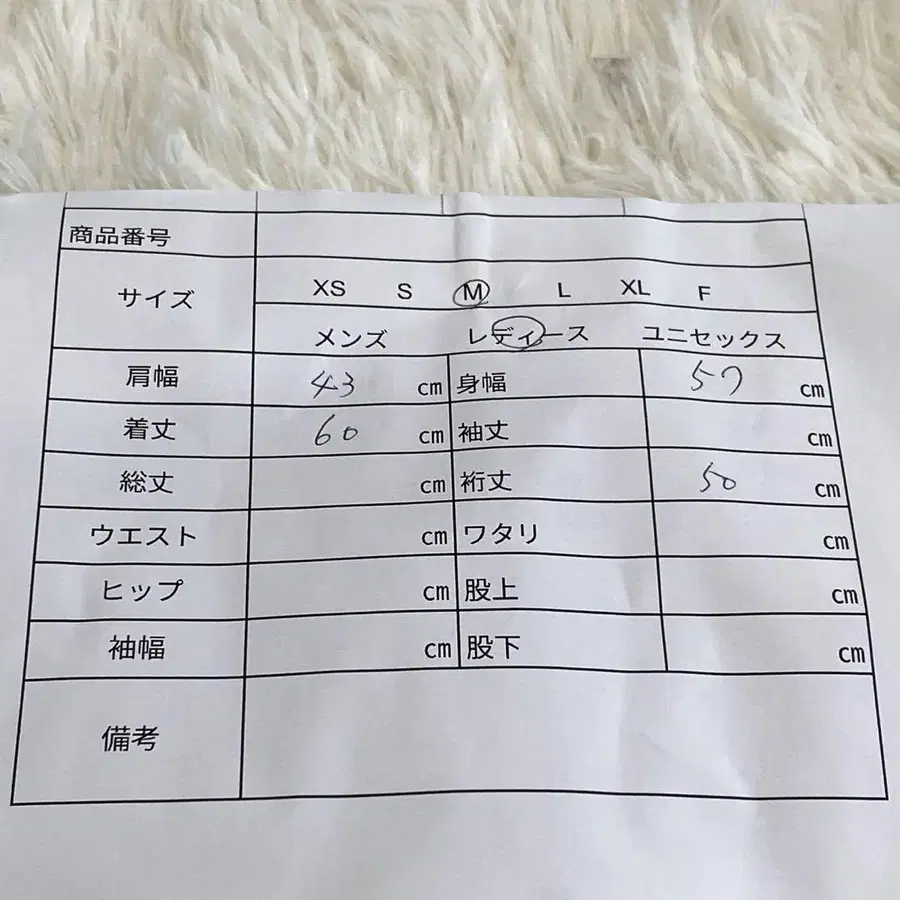 商品番号
サイズ XS S M L XL F
メンズ レディース ユニセックス
肩幅 43 cm 身幅 57 cm
着丈 60 cm 袖丈 cm
総丈 cm 裄丈 50 cm
ウエスト cm ワタリ cm
ヒップ cm 股上 cm
袖幅 cm 股下 cm
備考